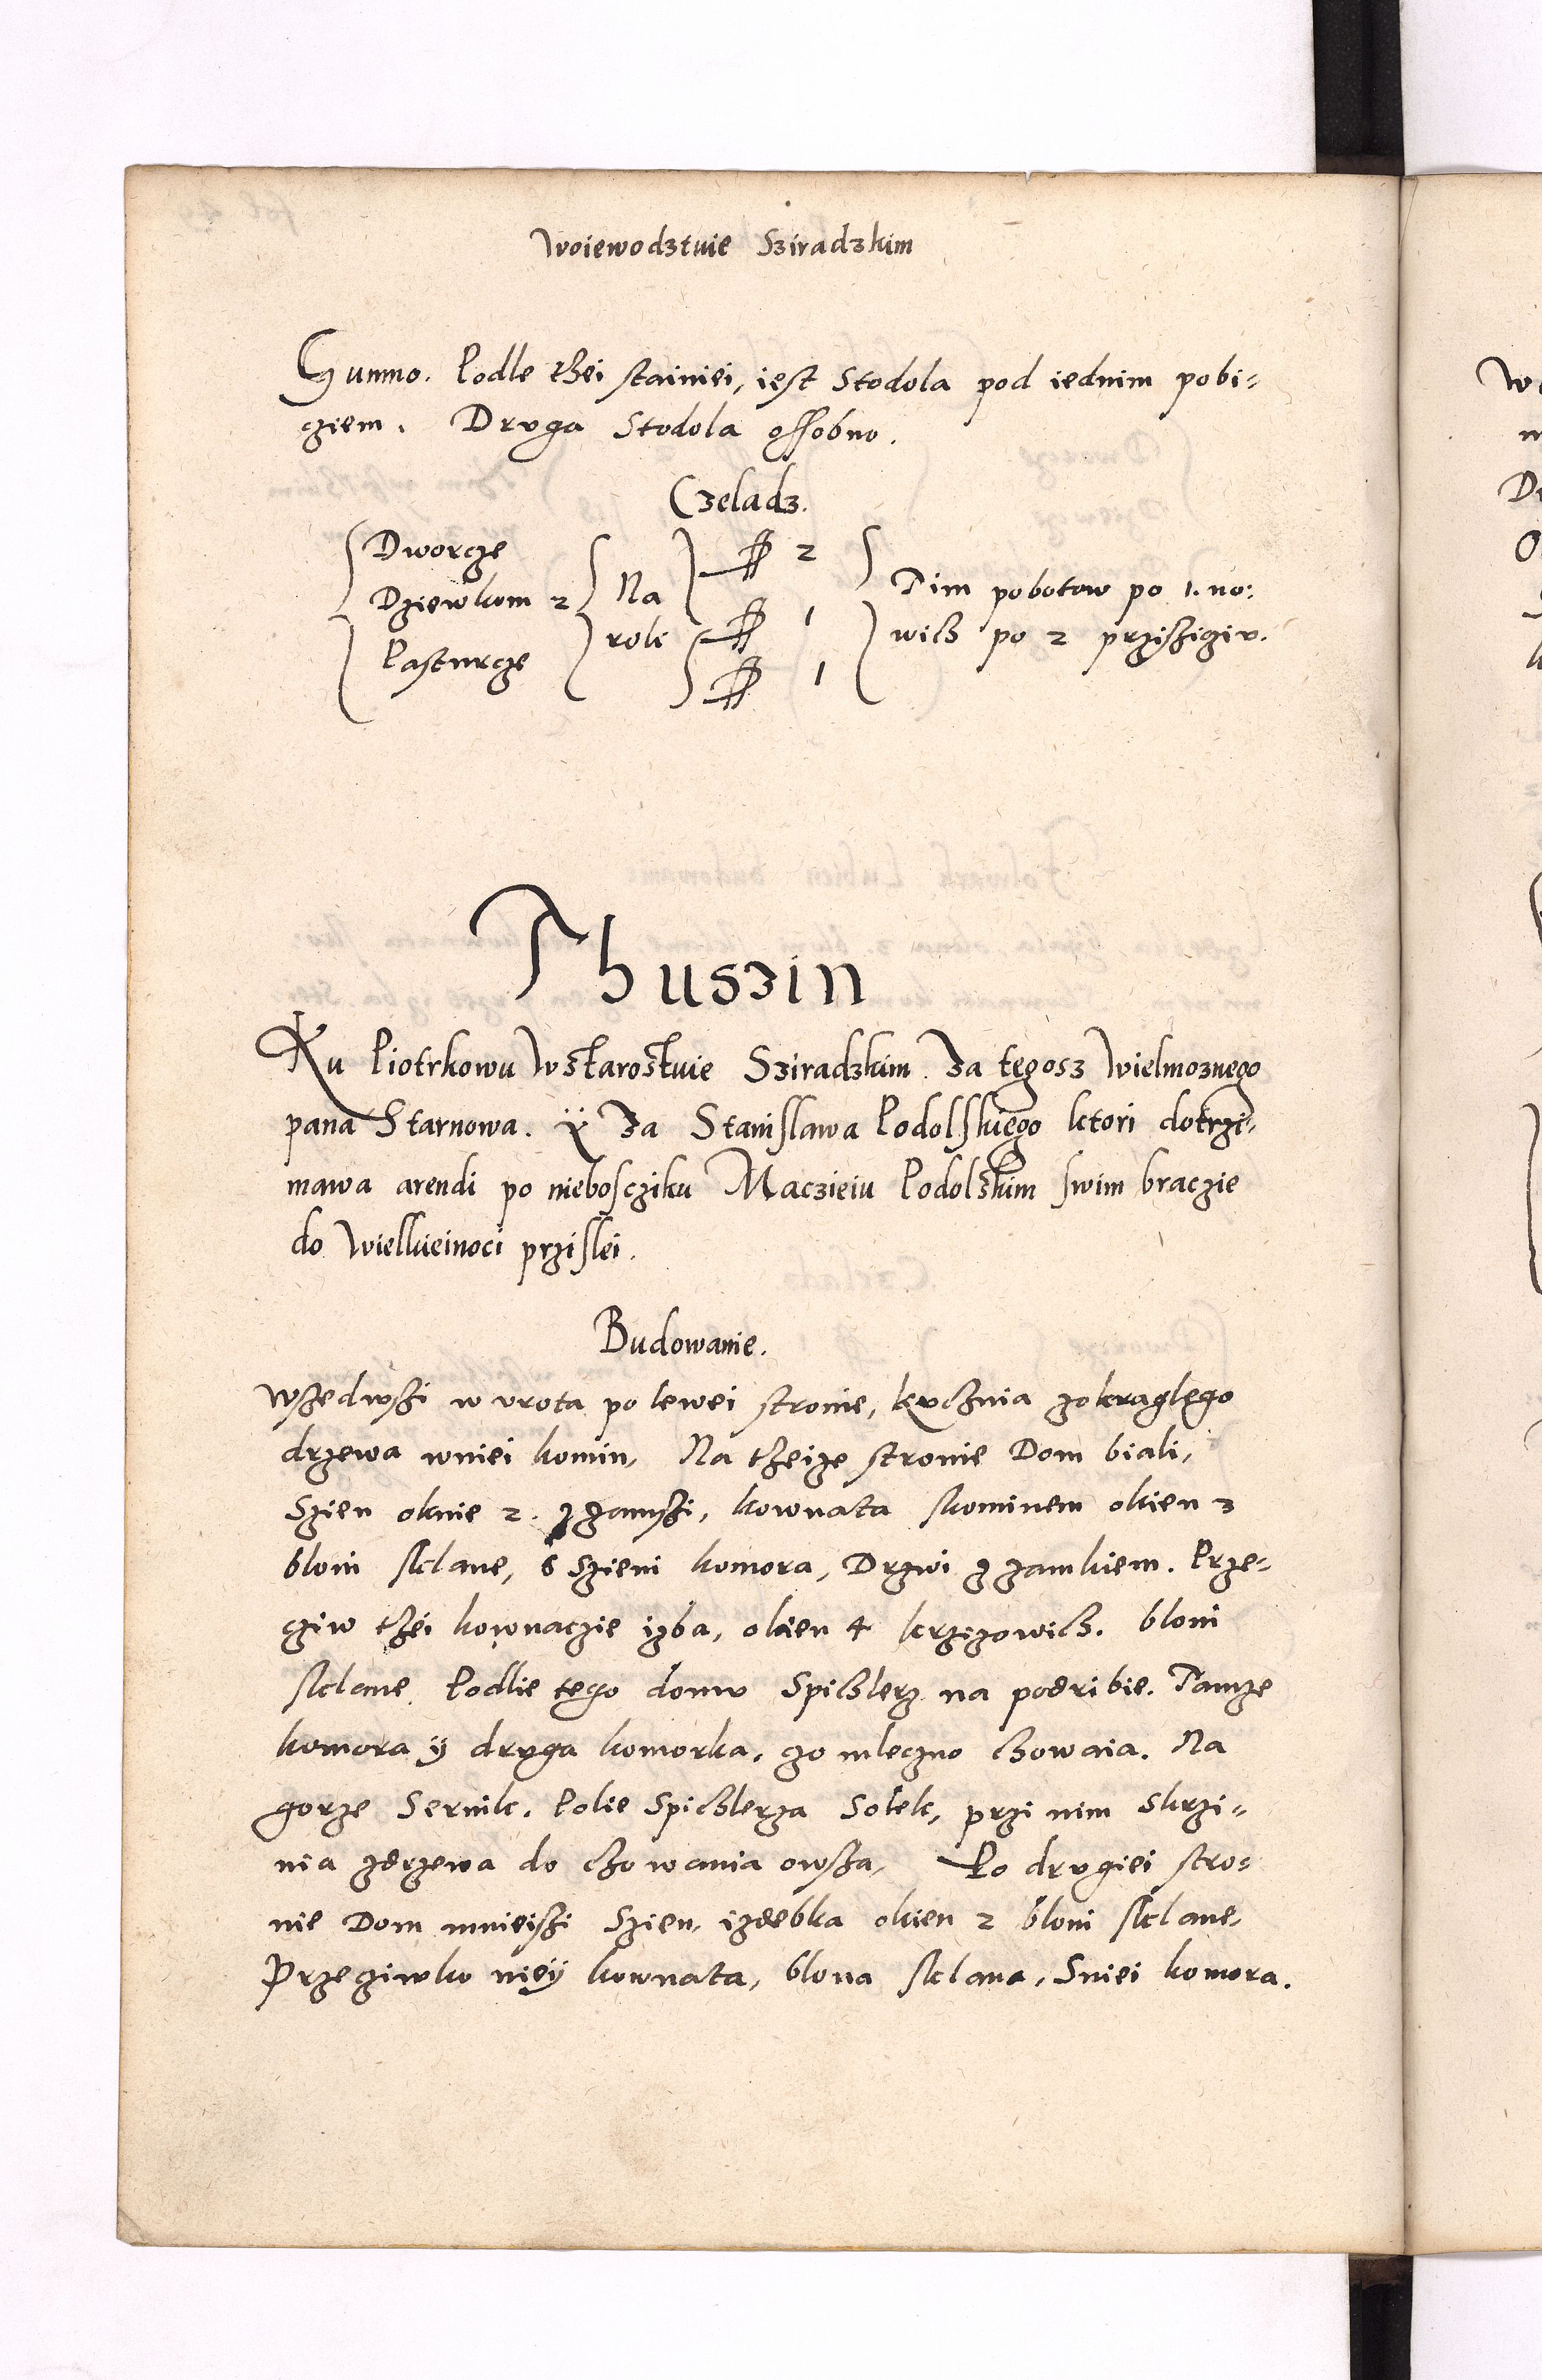 Woiewodztwie Sziradzkim
Gumno. Podle thei stainiei, iest Stodola pod iednim pobi-
cziem. Druga Stodola ossobno.
Czeladz.
Dworcze
Dziewkom 2
Pasturze
Na
roli
2
1
1
Tim pobotow po 1. no:
wich po 2 przisziciu.
Thuszin
Ku Piotrkowu W starostwie Sziradzkim. Za tegosz Wielmoznego
pana Starnowa. Y Za Stanislawa Podolskiego ktori dotrzi-
mawa arendi po niebosciku Maczieiu Podolskim swim braczie
do Wielkieinoci przislei.
Budowanie.
Wszedwszi w vrota po lewei stronie, kuchnia zokraglego
drzewa wniei komin, Na theize stronie Dom biali,
Szien oknie 2. kownata skominem okien 3
bloni sklane, S Szieni komora, Drzwi z zamkiem. Prze-
cziw thei kownaczie izba, okien 4 krzizowich. bloni
sklane. Podlie tego domu Spichlerz na podribie. Tamze
komora y druga komorka, czo mleczno chowaia. Na
gorze Sernik. Polie Spichlerza Solek, przi nim Skrzi-
nia zdrzewa do chowania owsza, Po drugiei stro-
nie Dom mnieiszi Szien, izdebka okien 2 bloni sklane,
Przecziwko niey kownata, blona sklana, Sniei komora.